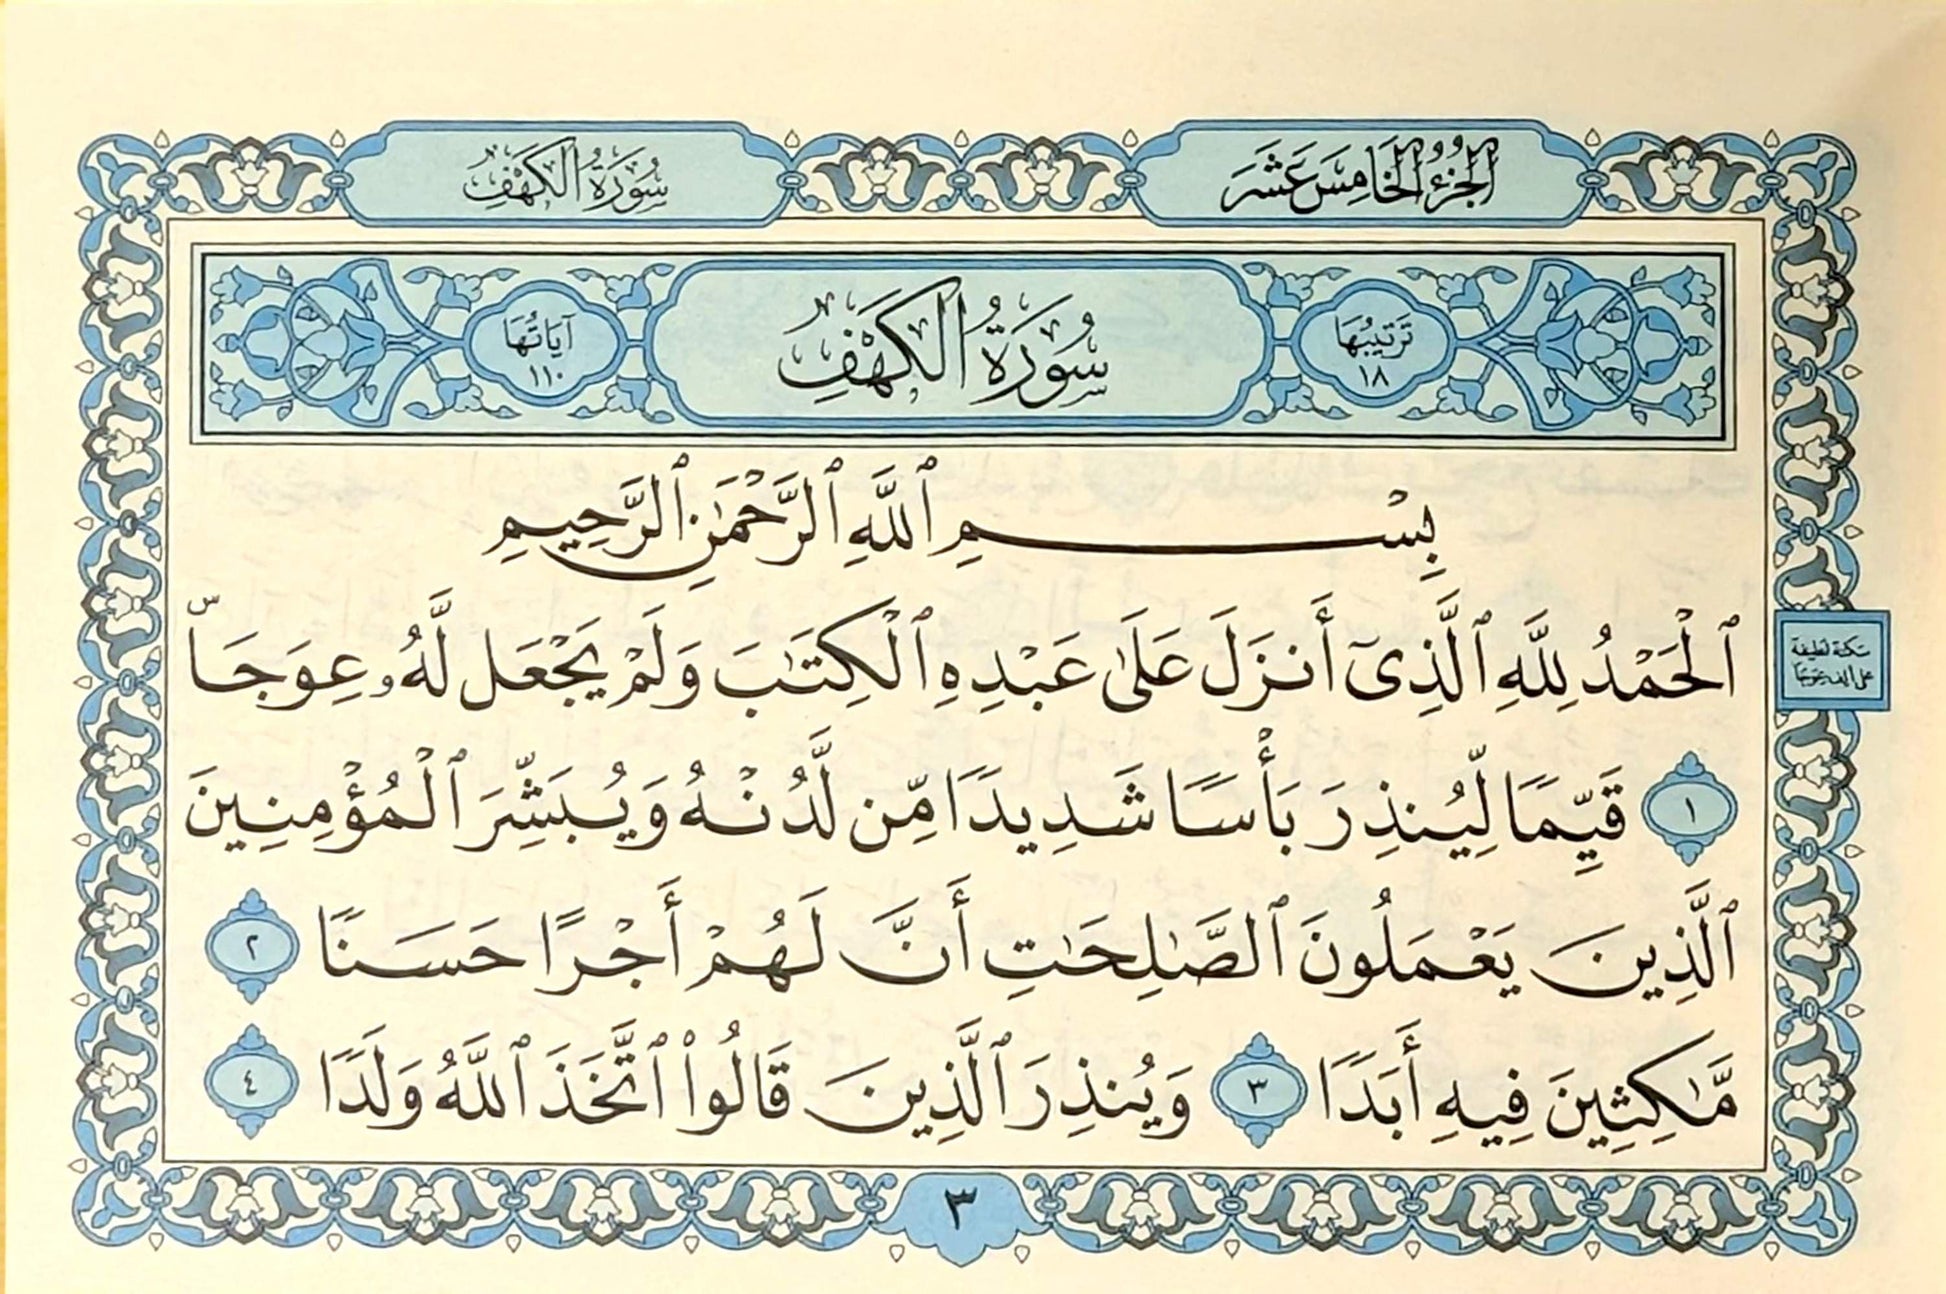 الجُزْءُ الخَامِسَ عَشَرَ
سُورَةُ الكَهْفِ
تَرْتِيبُهَا
١٨
سُورَةُ الكَهْفِ
آيَاتُهَا
١١٠
بِسْمِ ٱللَّهِ ٱلرَّحْمَٰنِ ٱلرَّحِيمِ
ٱلْحَمْدُ لِلَّهِ ٱلَّذِىٓ أَنزَلَ عَلَىٰ عَبْدِهِ ٱلْكِتَٰبَ وَلَمْ يَجْعَل لَّهُۥ عِوَجَاۜ
سكتة لطيفة
على ألف عوجا
١ قَيِّمًا لِّيُنذِرَ بَأْسًا شَدِيدًا مِّن لَّدُنْهُ وَيُبَشِّرَ ٱلْمُؤْمِنِينَ
ٱلَّذِينَ يَعْمَلُونَ ٱلصَّٰلِحَٰتِ أَنَّ لَهُمْ أَجْرًا حَسَنًا ٢
مَّٰكِثِينَ فِيهِ أَبَدًا ٣ وَيُنذِرَ ٱلَّذِينَ قَالُوا۟ ٱتَّخَذَ ٱللَّهُ وَلَدًا ٤
٣